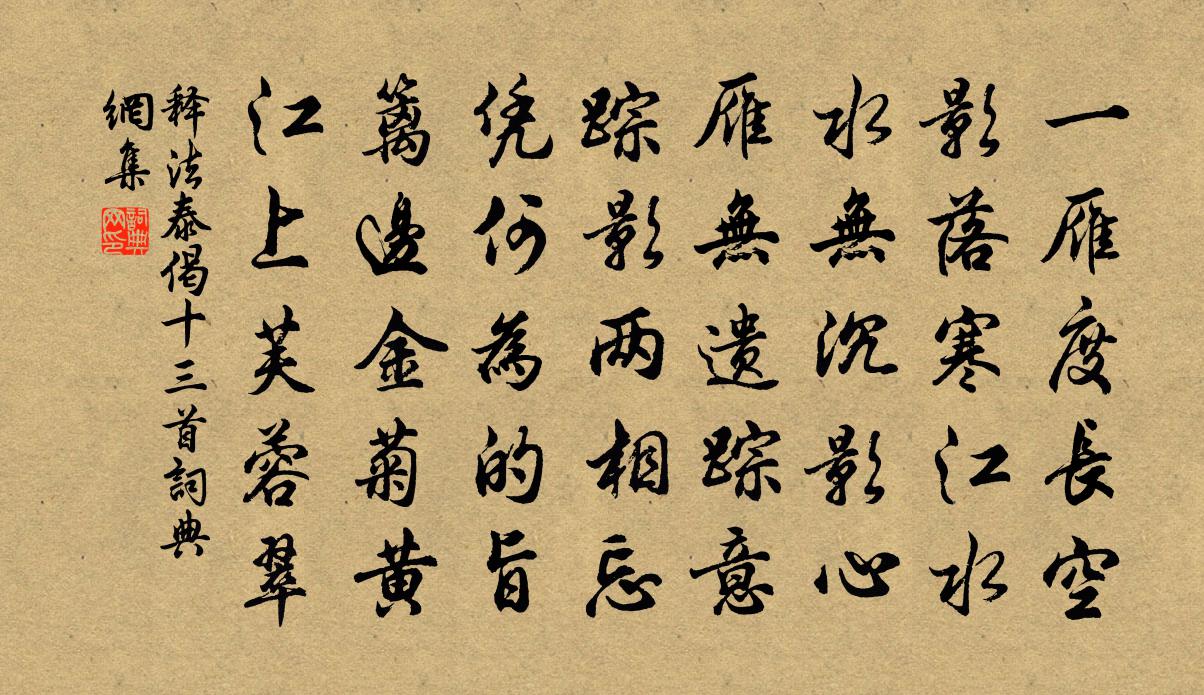 一雁度長空
影落寒江水
水無沉影心
雁無遗踪意
踪影两相忘
凭何為的旨
籬邊金菊黄
江上芙蓉翠
释法泰偈十三首詞典
網集
詞典
网印